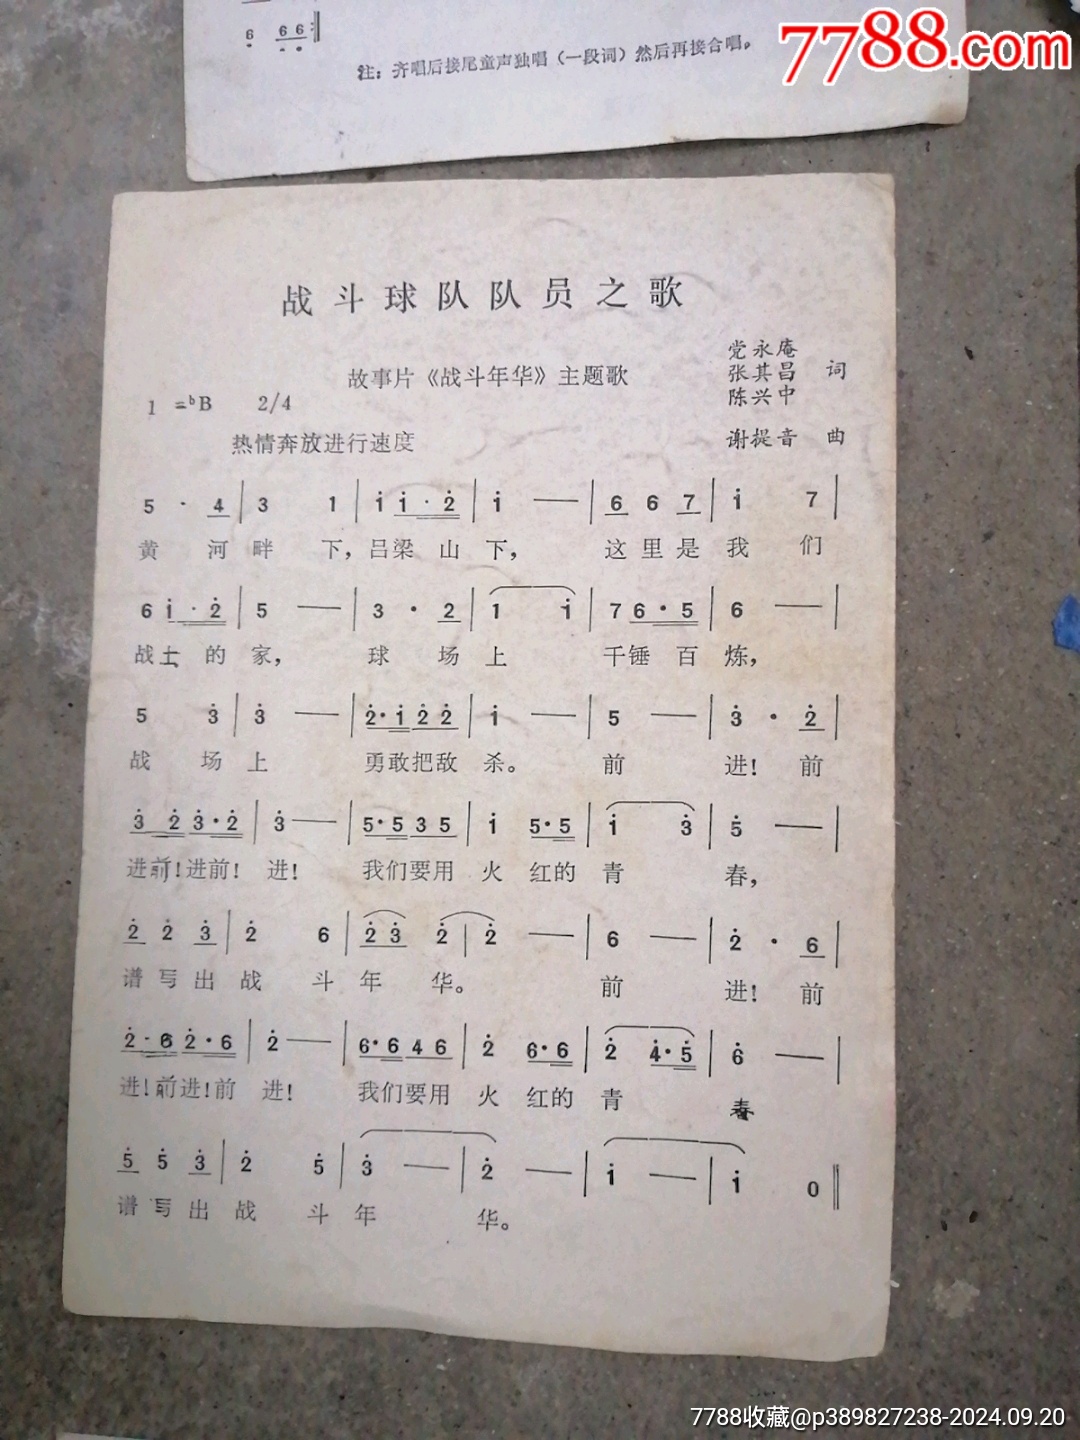 6 6 6:
注：齐唱后接尾童声独唱（一段词）然后再接合唱。
7788.com
战斗球队队员之歌
故事片《战斗年华》主题歌
党永庵
张其昌 词
陈兴中
1=♭B 2/4
热情奔放进行速度
谢提音 曲
5 · 4 | 3 1 | i i · 2 | i — | 6 6 7 | i 7 |
黄 河 畔 下，吕梁 山 下， 这 里 是 我 们
6 i · 2 | 5 — | 3 · 2 | 1 i | 7 6 · 5 | 6 — |
战士 的 家， 球 场 上 千锤 百 炼，
5 3 | 3 — | 2 · i 2 2 | i — | 5 — | 3 · 2 |
战 场 上 勇敢把敌 杀。 前 进！ 前
3 2 3 · 2 | 3 — | 5 · 5 3 5 | i 5 · 5 | i 3 | 5 — |
进前！进前！ 进！ 我们要用 火 红的 青 春，
2 2 3 | 2 6 | 2 3 2 | 2 — | 6 — | 2 · 6 |
谱 写 出 战 斗 年 华。 前 进！ 前
2 · 6 2 · 6 | 2 — | 6 · 6 4 6 | 2 6 · 6 | 2 4 · 5 | 6 — |
进！前进！前 进！ 我们要用 火 红的 青 春
5 5 3 | 2 5 | 3 — | 2 — | i — | i 0 ‖
谱 写 出 战 斗 年 华。
7788收藏@p389827238-2024.09.20